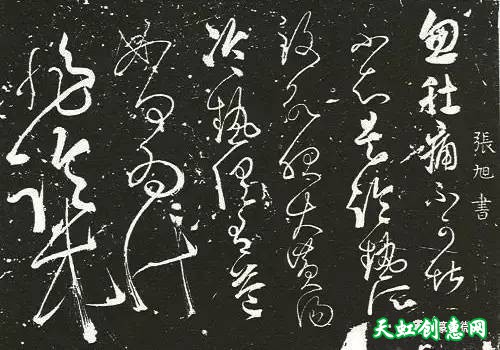 張旭書
忽肚痛不可堪
不知是冷熱所
致欲服大黃湯
冷熱俱有益
如何為計
天虹创意网